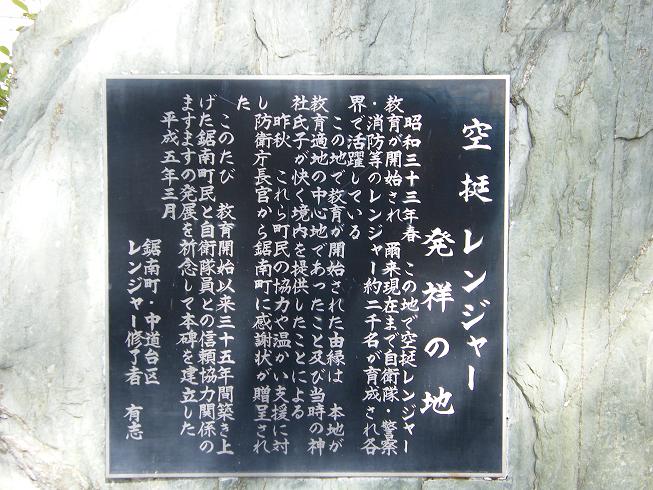 空挺レンジャー
発祥の地
昭和三十三年春 この地で空挺レンジャー
教育が開始され 爾来現在まで自衛隊・警察
・消防等のレンジャー約二千名が育成され各
界で活躍している
この地で教育が開始された由縁は 本地が
教育適地の中心地であったこと及び当時の神
社氏子が快く境内を提供したことによる
昨秋 これら町民の協力や温かい支援に対
し防衛庁長官から鋸南町に感謝状が贈呈され
た
このたび 教育開始以来三十五年間築き上
げた鋸南町民と自衛隊員との信頼協力関係の
ますますの発展を祈念して本碑を建立した
平成五年三月
鋸南町・中道台区
レンジャー修了者 有志